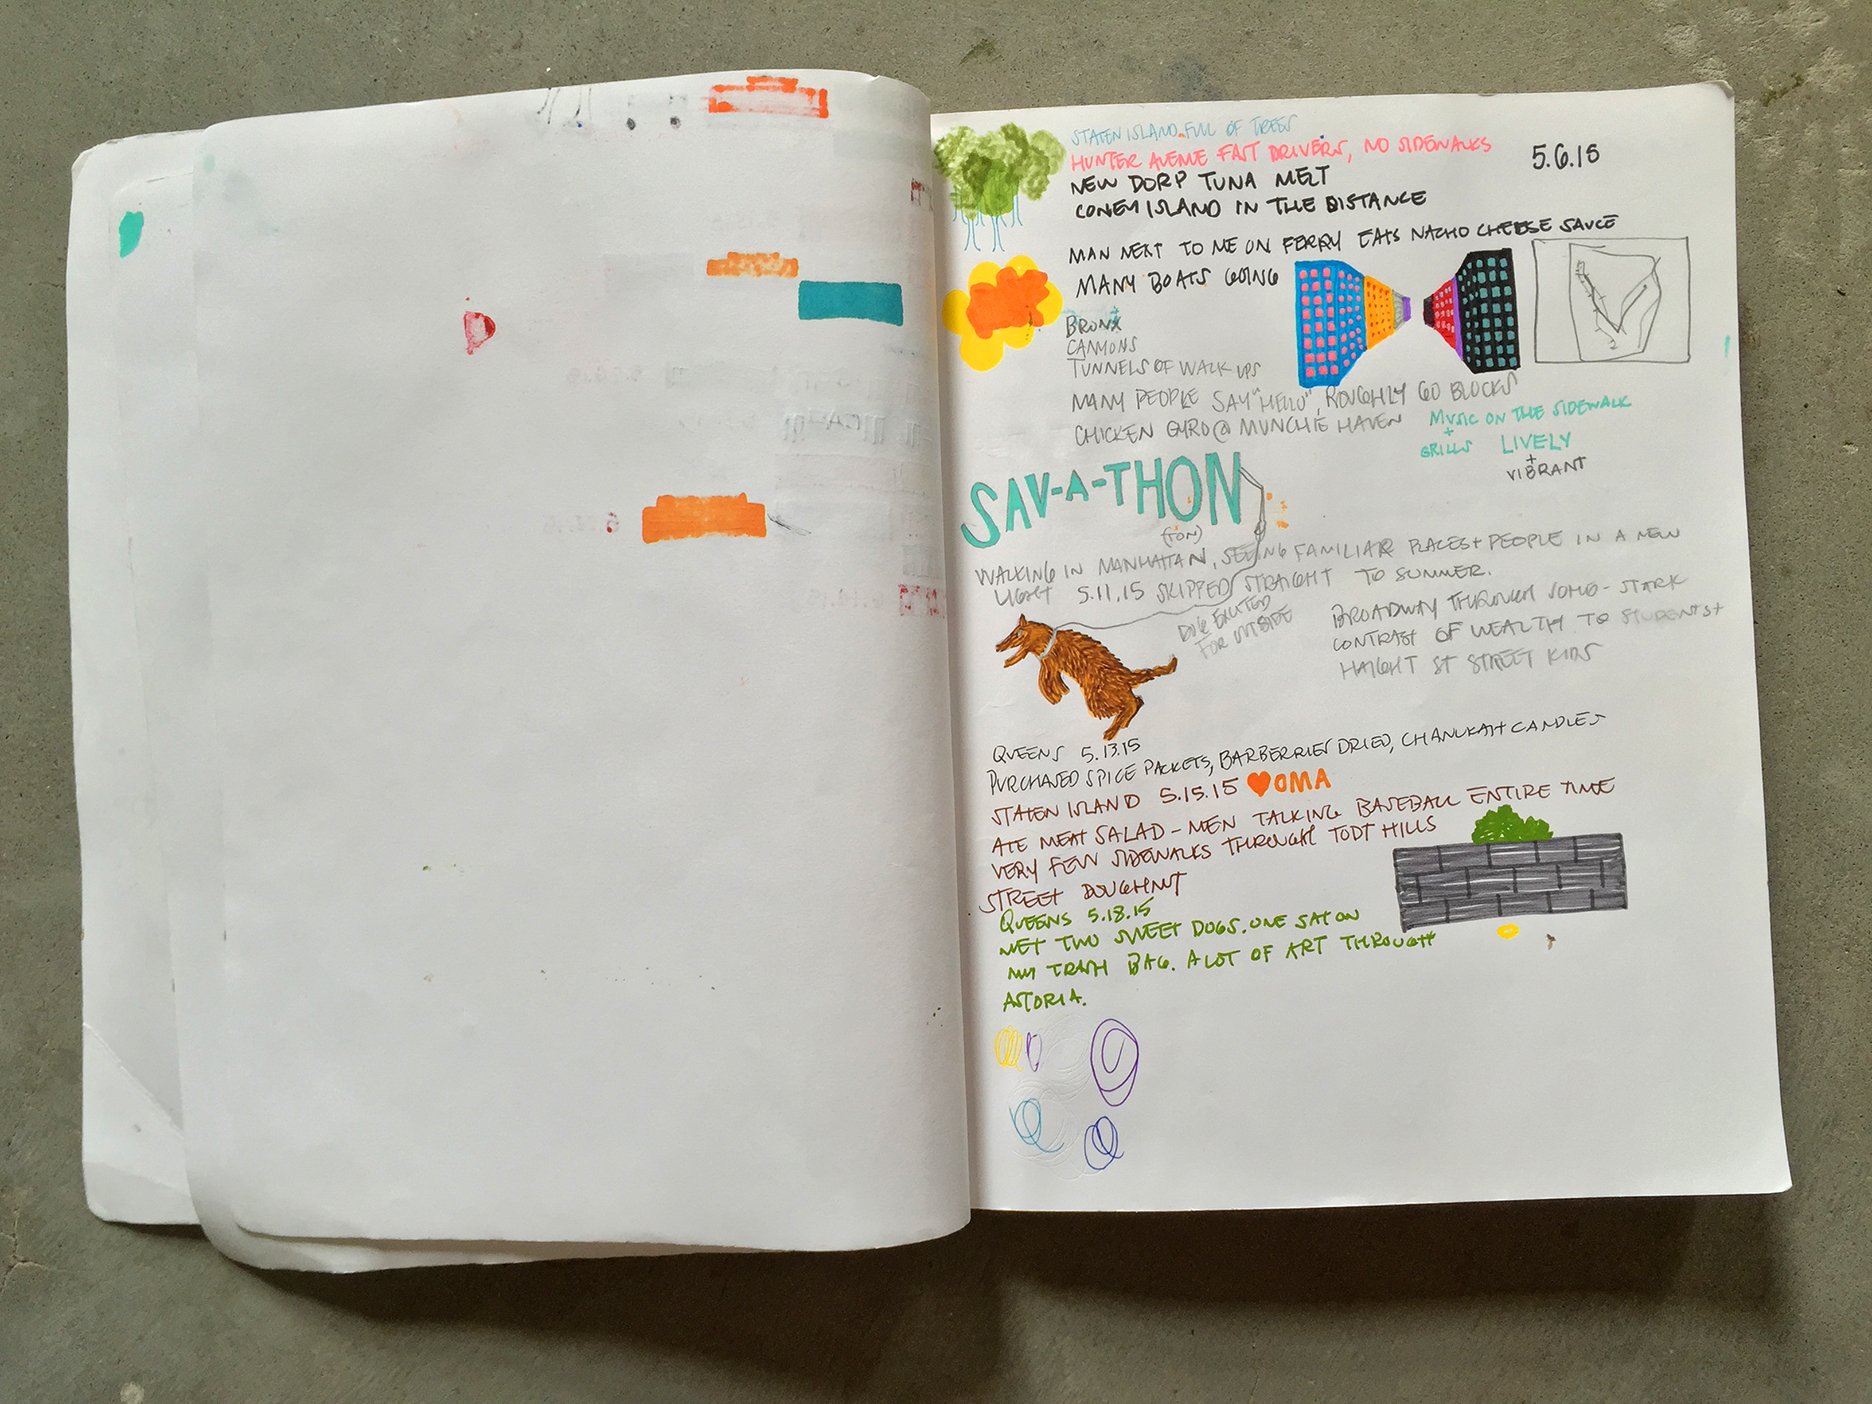 STATEN ISLAND. FULL OF TREES
HUNTER AVENUE FAST DRIVERS, NO SIDEWALKS
5.6.15
NEW DORP TUNA MELT
CONEY ISLAND IN THE DISTANCE
MAN NEXT TO ME ON FERRY EATS NACHO CHEESE SAUCE
MANY BOATS GOING
BRONX
CANYONS
TUNNELS OF WALK UPS
MANY PEOPLE SAY "HELLO", ROUGHLY 60 BLOCKS
CHICKEN GYRO @ MUNCHIE HAVEN
MUSIC ON THE SIDEWALK
+
GRILLS
LIVELY
+
VIBRANT
SAV-A-THON
(TON)
WALKING IN MANHATTAN, SEEING FAMILIAR PLACES + PEOPLE IN A NEW
LIGHT 5.11.15 SKIPPED STRAIGHT TO SUMMER.
DOG EXCITED
FOR OUTSIDE
BROADWAY THROUGH SOHO - STARK
CONTRAST OF WEALTH TO STUDENTS +
HAIGHT ST STREET KIDS
QUEENS 5.13.15
PURCHASED SPICE PACKETS, BARBERRIES DRIED, CHANUKAH CANDLES
STATEN ISLAND 5.15.15 ♥OMA
ATE MEAT SALAD - MEN TALKING BASEBALL ENTIRE TIME
VERY FEW SIDEWALKS THROUGH TODT HILLS
STREET DOUGHNUT
QUEENS 5.18.15
MET TWO SWEET DOGS. ONE SAT ON
MY TRASH BAG. A LOT OF ART THROUGH
ASTORIA.